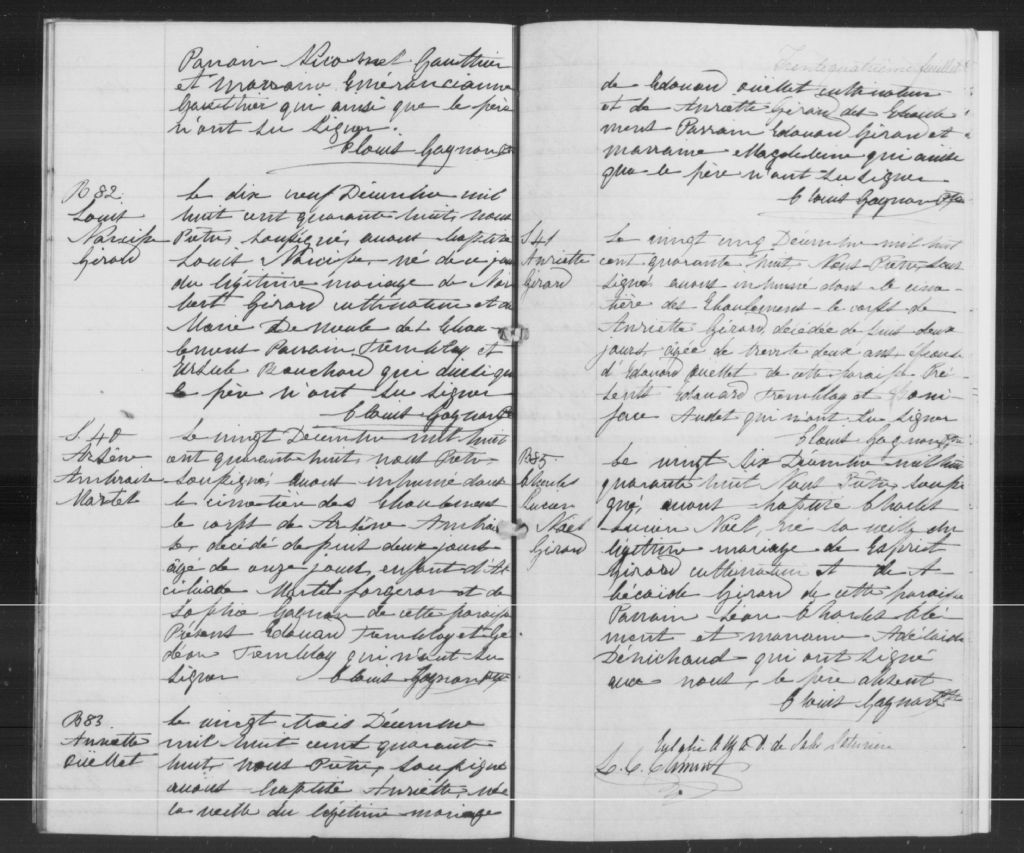 Parrain Gauthier
et marraine Emérancianne
Gauthier qui ainsi que le père
n'ont su signer.
Clovis Gagnon Ptre
B 82
Louis
Narcisse
Girard
Le dix neuf Décembre mil
huit cent quarante huit, nous
Prêtre, soussigné, avons baptisé
Louis Narcisse, né de ce jour
du légitime mariage de Nor
bert Girard cultivateur et de
Marie Demeule des Ebou-
lements Parrain Tremblay et
Ursule Bouchard qui ainsi que
le père n'ont su signer
Clovis Gagnon Ptre
S 40
Arsène
Ambroise
Martel
Le vingt Décembre mil huit
cent quarante huit, nous Prêtre
soussigné, avons inhumé dans
le cimetière des Eboulements
le corps de Arsène Ambroi
se, décédé depuis deux jours
âgé de onze jours, enfant d'
Martel forgeron et de
Sophie Gagnon de cette paroisse
Présents Edouard Tremblay et Gé
déon Tremblay qui n'ont su
signer Clovis Gagnon Ptre
B83
Anriette
Ouellet
Le vingt trois Décembre
mil huit cent quarante
huit, nous Prêtre, soussigné
avons baptisé Anriette, née
la veille du légitime mariage
Trentequatrième feuillet
de Edouard Ouellet cultivateur
et de Anriette Girard des Eboule
ments Parrain Edouard Girard et
marraine Magdeleine qui ainsi
que le père n'ont su signer
Clovis Gagnon Ptre
S 41
Anriette
Girard
Le vingt cinq Décembre mil huit
cent quarante huit, Nous Prêtre, sous
signé, avons inhumé dans le cime-
tière des Eboulements le corps de
Anriette Girard, décédée depuis deux
jours, âgée de trente deux ans, épouse
d'Edouard Ouellet de cette paroisse Pré-
sents Edouard Tremblay et Boni-
face Audet qui n'ont su signer
Clovis Gagnon Ptre
B85
Charles
Lucien
Noël
Girard
Le vingt six Décembre mil huit
quarante huit Nous Prêtre, soussi
gné, avons baptisé Charles
Lucien Noël, né la veille du
légitime mariage de Esprit
Girard cultivateur et de A-
Girard de cette paroisse
Parrain Léon Charles Clé
ment et marraine Adélaïde
Dénichaud qui ont signé
avec nous, le père absent
Clovis Gagnon Ptre
L. C. Clément